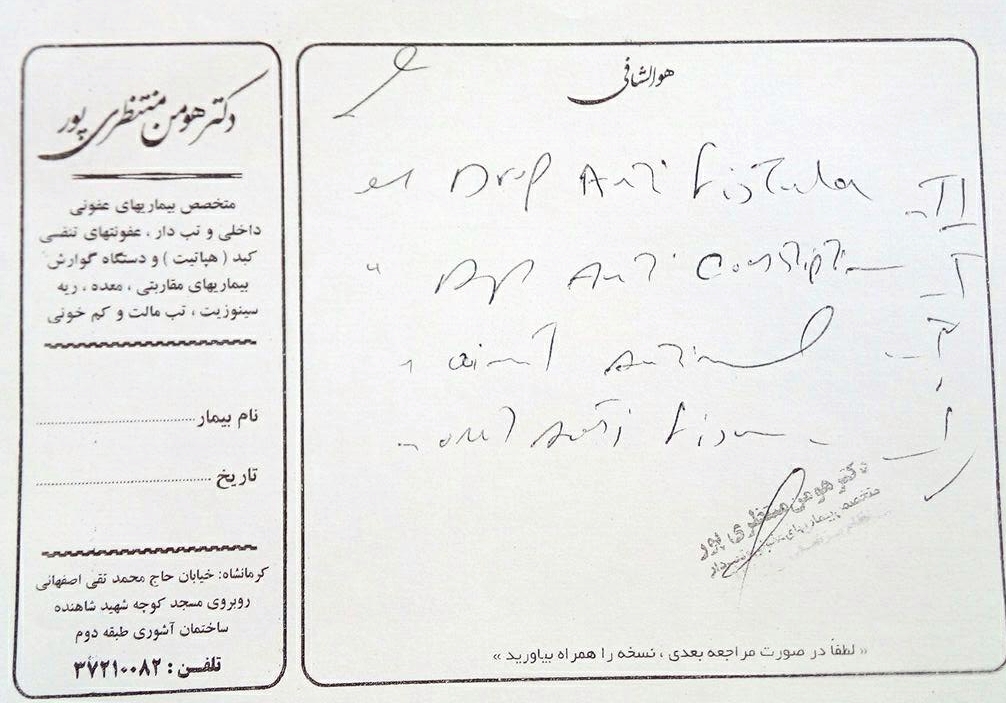 دکتر هومن منتظری پور
متخصص بیماریهای عفونی
داخلی و تب دار ، عفونتهای تنفسی
کبد ( هپاتیت ) و دستگاه گوارش
بیماریهای مقاربتی ، معده ، ریه
سینوزیت ، تب مالت و کم خونی
نام بیمار
تاریخ
کرمانشاه: خیابان حاج محمد تقی اصفهانی
روبروی مسجد کوچه شهید شاهنده
ساختمان آشوری طبقه دوم
تلفن : ۳۷۲۱۰۰۸۲
هوالشافی
Drop Anti fistula II
Anti Constiption
Anti
Anti
دکتر هومن منتظری پور
« لطفاً در صورت مراجعه بعدی ، نسخه را همراه بیاورید »